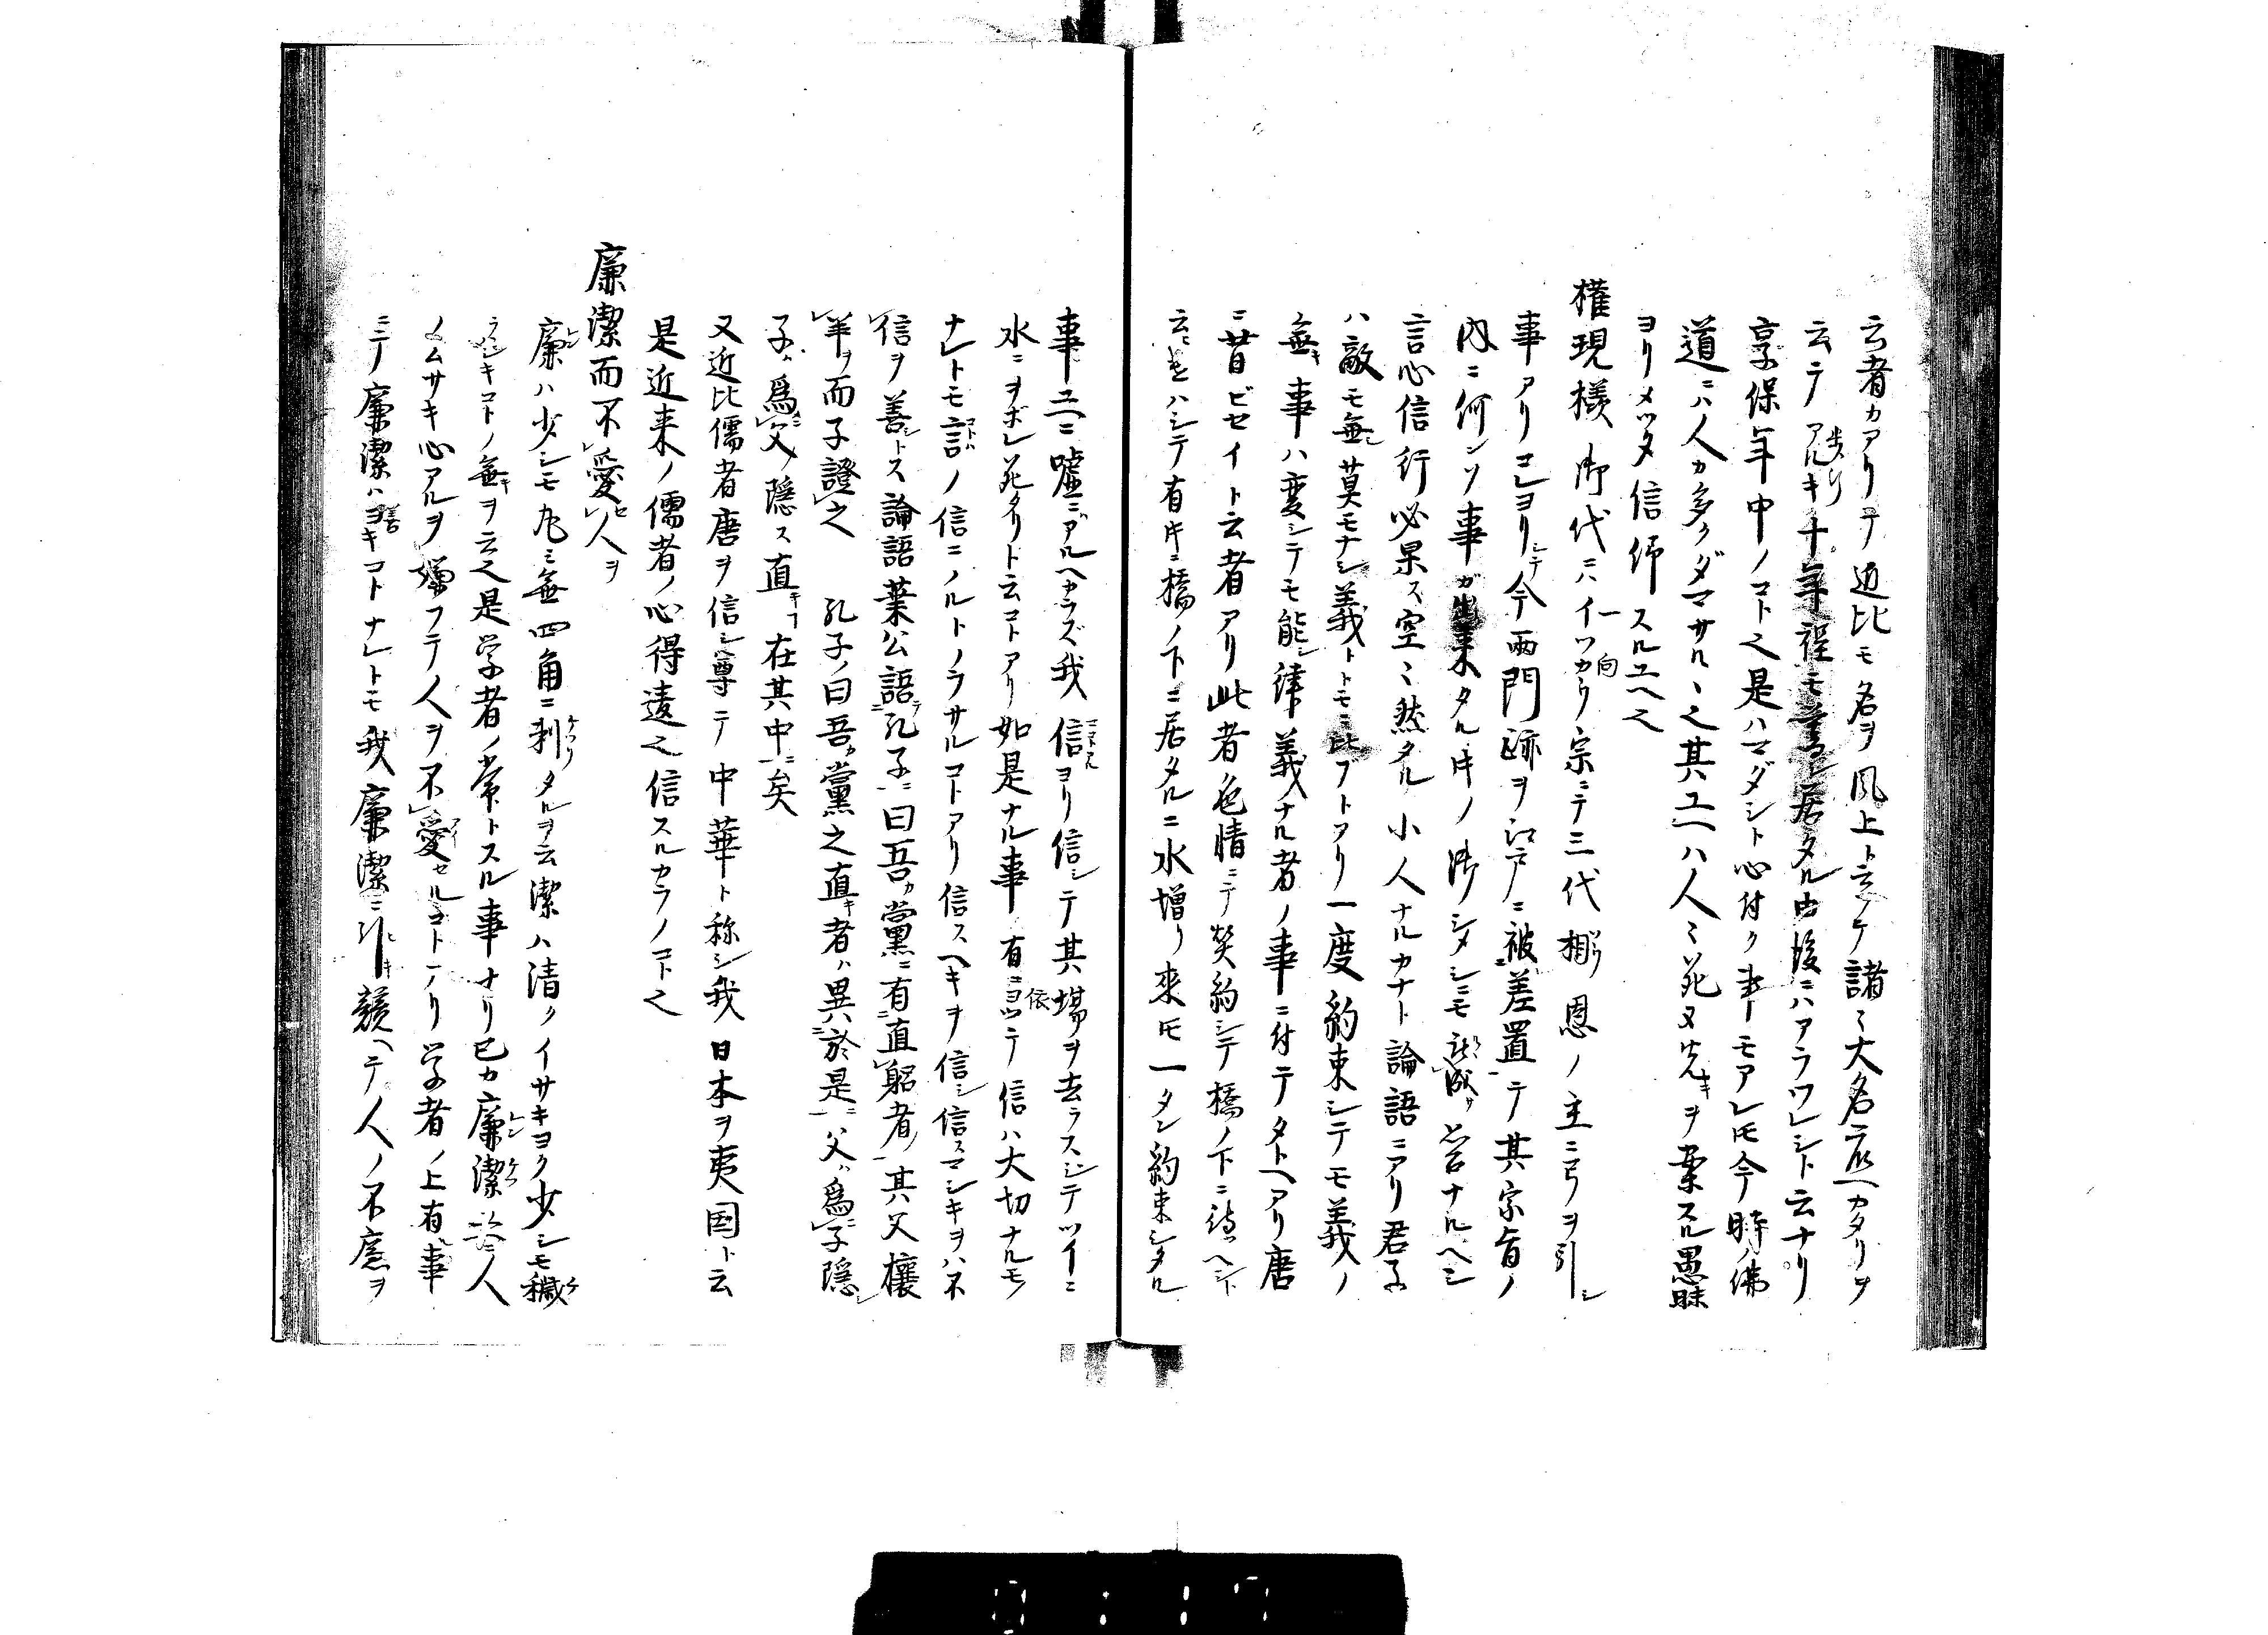 云者カアリテ近比モ名ヲ風上ト云ケ諸々大名広ヘカタリヲ
云テアルキ十年程モ居タル由後ニハアラワレシト云ナリ
享保年中ノコト之是ハマダシト心付ク事モアレ𪜈今時ノ佛
道ニハ人カ多クダマサルヽ之其ユヘハ人ミ死ヌ先キヲ楽スル愚昧
ヨリメッタ信仰スルユヘ之
権現様御代ニハイッカウ宗ニテ三代相恩ノ主ニ弓ヲ引シ
事アリコレヨリシテ今両門跡ヲ江戸ニ被差置テ其宗旨ノ
内ニ何ンソ事ガ出来タル時ノ御シメシニモ被成筈ナルヘシ
言心信行必果ス空ミ然タル小人ナルカナト論語ニアリ君子
ハ敵モ無莫モナシ義トトモニ比フトアリ一度約束シテモ義ノ
無キ事ハ変シテモ能シ律義ナル者ノ事ニ付テタトヘアリ唐
ニ昔ビセイト云者アリ此者色情ニテ契約シテ橋ノ下ニ待ヘシト
云ニ違ハシテ有時ニ橋ノ下ニ居タルニ水増リ来𪜈一タン約束シタル
事ユヘニ嘘ニアルヘカラズ我信ヨリ信シテ其場ヲ去ラスシテツイニ
水ニヲボレ死タリト云コトアリ如是ナル事有ニヨッテ信ハ大切ナルモノ
ナレトモ言ノ信ニノルトノラサルコトアリ信スヘキヲ信シ信スマシキヲハ不
信ヲ善トス論語葉公語孔子ニ曰吾カ黨ニ有直躬者其父攘
羊ヲ而子證之 孔子ノ曰吾カ黨之直キ者ハ異於是ニ父ハ為子隠シ
子ハ為父ノ隠ス直キコト在其中ニ矣
又近比儒者唐ヲ信シ尊テ中華ト称シ我日本ヲ夷国ト云
是近来ノ儒者ノ心得違之信スルカラノコト之
廉潔而不愛セ人ヲ
廉ハ少シモ丸ミ無四角ニ刹タルヲ云潔ハ清クイサキヨク少シモ穢
ラシキコトノ無キヲ云之是学者ノ常トスル事ナリ己カ廉潔 人
ノムサキ心アルヲ嫌フテ人ヲ不愛セルコトアリ学者ノ上有事
ニテ廉潔ハヨキコトナレトモ我廉潔ニ引キ競ヘテ人ノ不廉ヲ